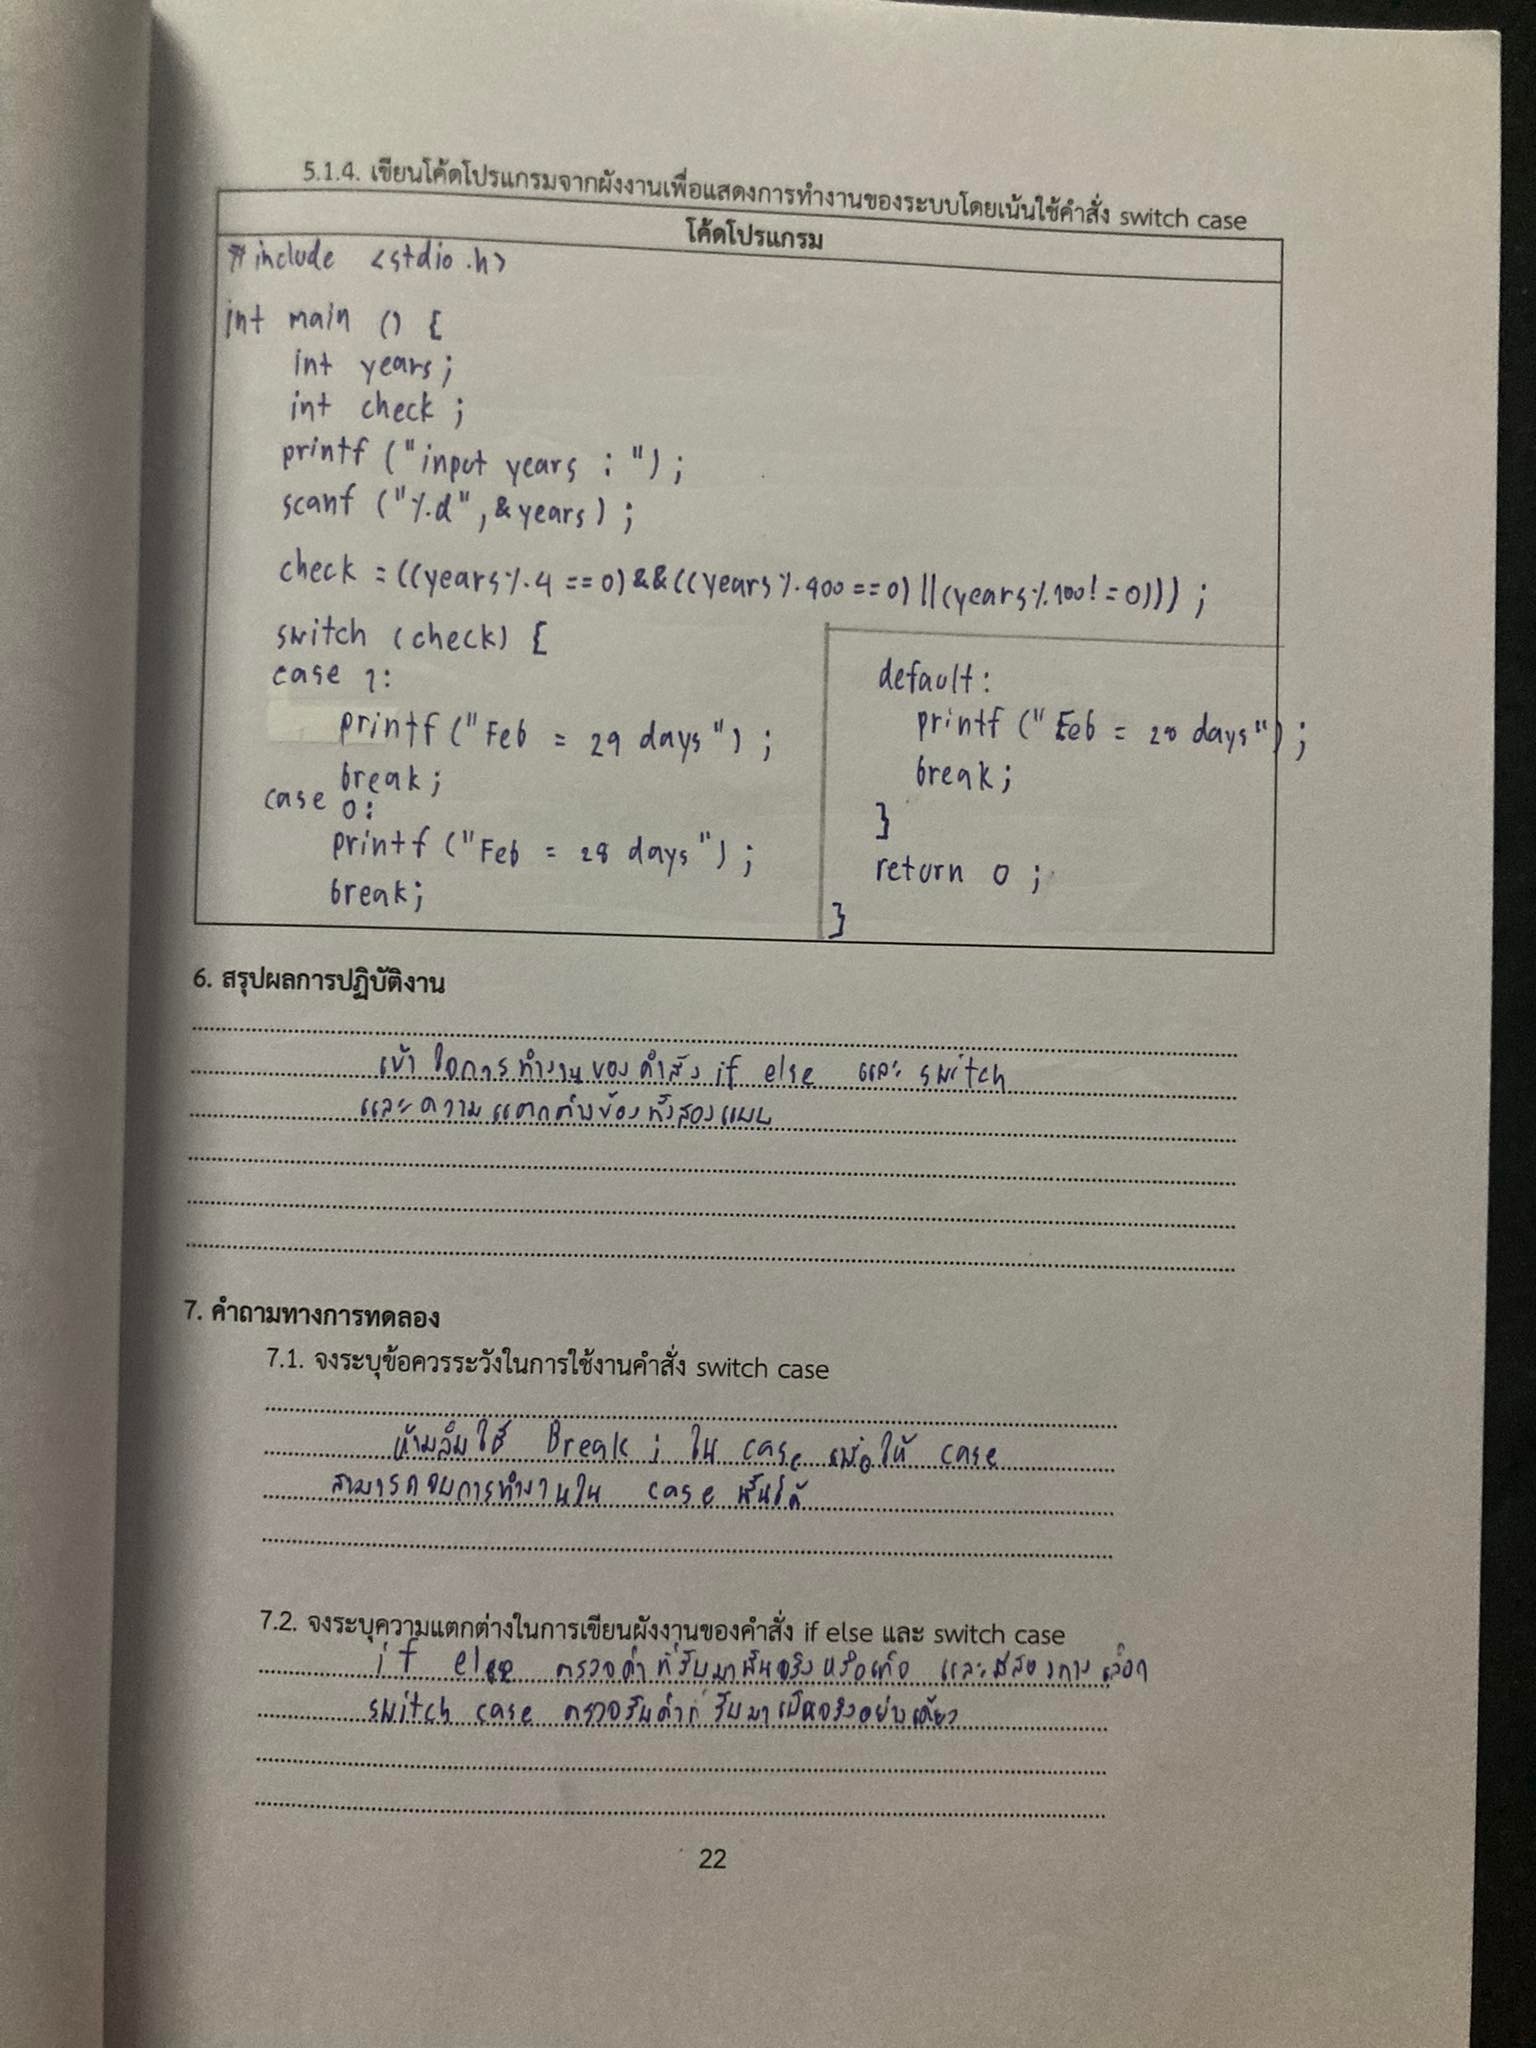 5.1.4. เขียนโค้ดโปรแกรมจากผังงานเพื่อแสดงการทำงานของระบบโดยเน้นใช้คำสั่ง switch case
โค้ดโปรแกรม
#include <stdio.h>
int main () {
int years;
int check ;
printf ("input years : ") ;
scanf ("%d", &years) ;
check = ((years % 4 == 0) && ((years % 400 == 0) || (years % 100 != 0))) ;
switch (check) {
case 1:
printf ("Feb = 29 days") ;
break ;
case 0:
printf ("Feb = 28 days") ;
break;
default:
printf (" Feb = 28 days") ;
break ;
}
return 0 ;
}
6. สรุปผลการปฏิบัติงาน
เข้าใจการทำงานของคำสั่ง if else และ switch
และความแตกต่างของทั้งสองแบบ
7. คำถามทางการทดลอง
7.1. จงระบุข้อควรระวังในการใช้งานคำสั่ง switch case
ห้ามลืมใช้ Break ; ใน case เพื่อให้ case
สามารถจบการทำงานใน case นั้นได้
7.2. จงระบุความแตกต่างในการเขียนผังงานของคำสั่ง if else และ switch case
if else ตรวจค่าที่รับมาเป็นจริงหรือเท็จ และมีสองทางเลือก
switch case ตรวจรับค่าที่รับมาเป็นจริงอย่างเดียว
22